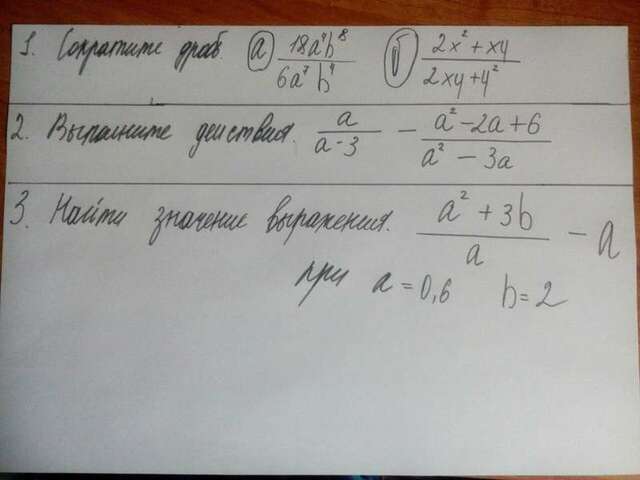 1. Сократите дроб. а) 18a⁴b⁸ / 6a⁷b⁴ б) 2x² + xy / 2xy + y²
2. Выполните действия. a / a - 3 - a² - 2a + 6 / a² - 3a
3. Найти значение выражения. a² + 3b / a - a
при a = 0,6 b = 2